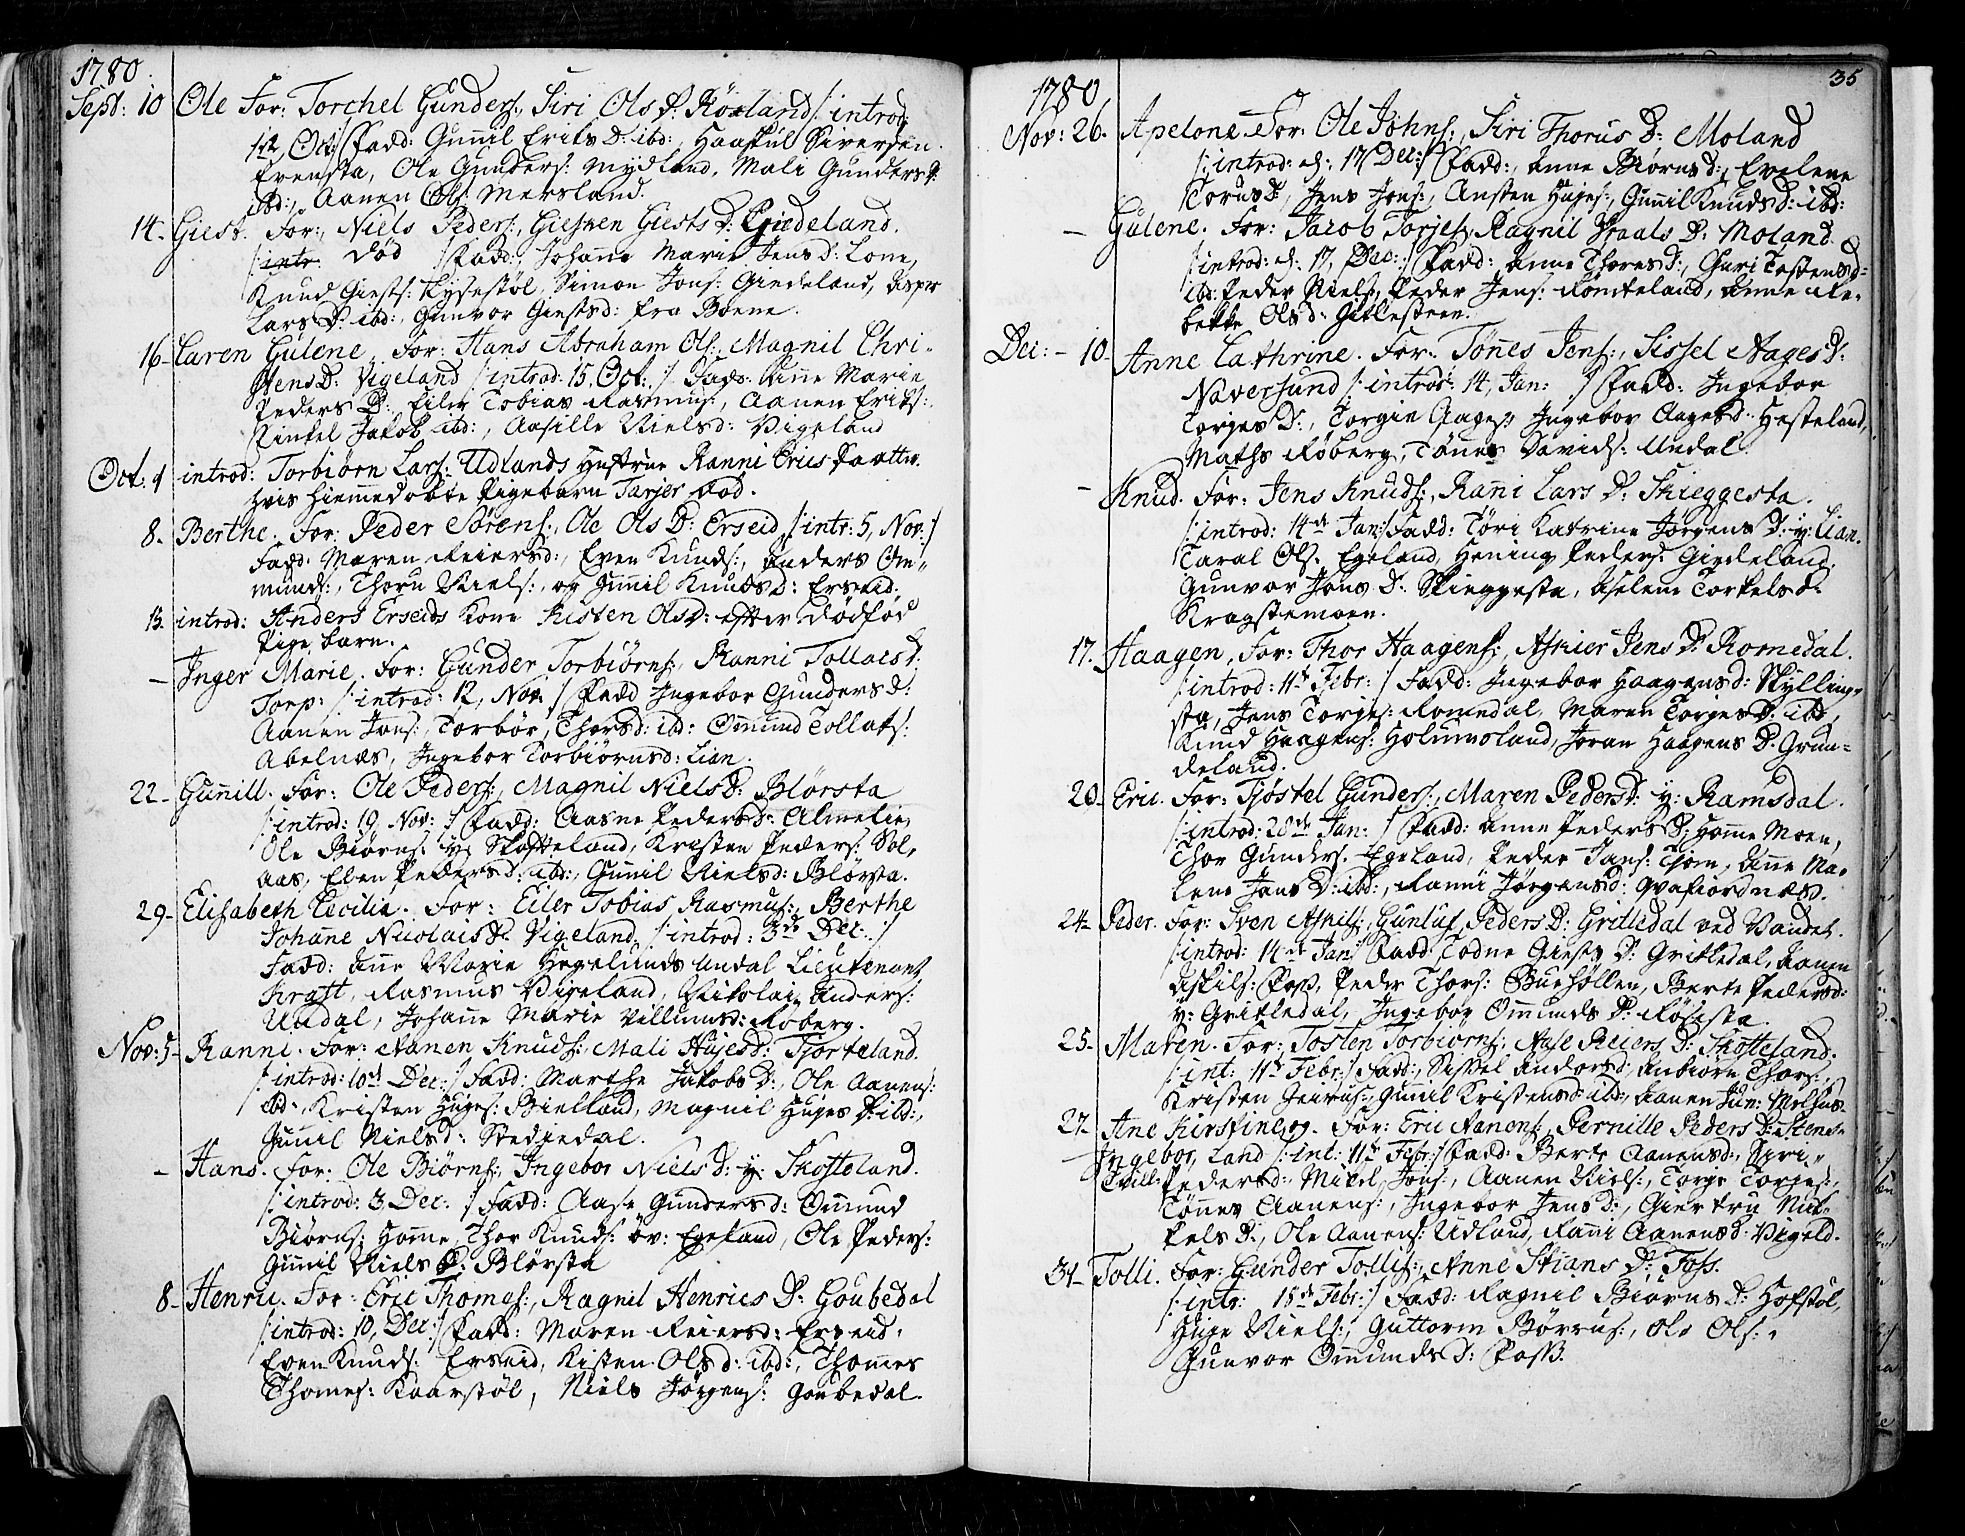 1780
Sept: 10 Ole For: Torchel Gunders:, Siri Ols D: Röxland /: introd:
1ste Oct:/ Fadd: Gunnil Eriks D: ibd:, Haaskul Siversen
Evensta, Ole Gunders: Mydland, Mali Gunders D:
ibd:, Aanen Ols: Mersland.
14. Giest. For: Niels Peders:, Giesken Giests D: Giedeland.
/: intr: død /Fadd:, Johanne Marie Jens D: Lone,
Knud Giests: Kysestöl, Simon Jons: Giedeland,
Lars D: ibd:, Gunvor Giestsd: fra Boene.
16. Caren Gulene. For: Hans Abraham Ols:, Magnil Chri-
stens D: Vigeland /: introd: 15, Oct: :/ Fadd: Anne Marie
Peders D:, Eiler Tobias Rasmus:, Aanen Eriks:
Rinkel Jakob ibd:, Aasille Nielsd: Vigeland
Oct: 1 introd: Torbiørn Lars: Udlands Hustrue Ranni Erics Daatter
hvis hiemmedøbte Pigebarn Tarjer død.
8. Berthe. For: Peder Sørens:, Ole Ols D: Erseid, /: intr: 5, Nov: /
Fadd: Maren Reiersd:, Even Knuds:, Anders Om-
munds:, Thoru Niels:, og Gunnil Knuds D: Erseid.
15. introd: Anders Erseids Kone Kisten Ols D: efter dødfød
Pige barn.
- Inger Marie. For: Gunder Torbiørns:, Ranni Tollacs d:
Torp: /: introd: 12, Nov: / Fadd Ingebor Gunders D:
Aanen Jons:, Torbör, Thorsd: ibd: Ommund Tollaks:
Abelnæs, Ingebor Torbiörnsd: Lian.
22- Gunnill. For: Ole Peders:, Magnil Niels D: Blørsta
/: introd: 19 Nov: :/ Fadd: Aasne Peders D: Almelie,
Ole Biørns: y: Skofteland, Kristen Peders: Sol,
aas, Elen Peders d: ibd:, Gunnil Nielsd: Blörsta.
29- Elisabeth Cecilia. For: Eiler Tobias Rasmus:, Berthe
Johanne Nicolais D: Vigeland, /: introd: 3de Dec: :/
Fadd: Anne Marie Hegelunds Undal Lieutenant
Kraft, Rasmus Vigeland, Nikolai Anders:
Undal, Johanne Marie Villumsd: Röberg.
Nov: 5- Ranni. For: Aanen Knuds:, Mali Hujes D: Fjorteland.
/: introd: 10de Dec: / Fadd: Marthe Jakobs D:, Ole Aanens:
ibd:, Kristen Hujes: Bielland, Magnil Hujes D: ibd:,
Gunnil Niels d: Stedjedal.
- Hans. For: Ole Biørns:, Ingebor Niels D: y: Skofteland.
/: introd: 3 Dec: :/ Fadd: Aase Gunders d: Ommund
Biörns: Homme, Thor Knuds: öv: Egeland, Ole Peders:
Gunnil Niels D: Blörsta
8- Henric. For: Eric Thomes:, Ragnil Henrics D: Goubedal
/: introd: 10, Dec: / Fadd: Maren Reiersd: Erseid,
Even Knuds: Erseid, Kisten Olsd: ibd:, Thommes
Thomes: Kaarstöl, Niels Jörgens: Goubedal.
35
1780
Nov: 26. Apelone. For: Ole Johns:, Siri Thorus D: Moland
/: introd: d: 17 Dec: / Fadd:, Anne Biørns D:, Evelene
Torus D:, Jens Jons:, Ansten Hujes:, Gunnil Knuds D: ibd:
- Gulene. For: Jacob Torjes:, Ragnil Iraals D: Moland.
/: introd: d: 17, Dec: / Fadd: Anne Thores D:, Guri Tostensd:
ibd: Peder Niels:, Peder Jens: Romteland, Anne Re-
bekke Olsd: Gitlesteen.
Dec: - 10. Anne Cathrine. For: Tönnes Jens:, Sissel Aages D:
Naversund /: introd: 14, Jan: / Fadd: Ingebor
Torjes D:, Torgin Aages: Ingebor Aagesd: Hesteland,
Maths Röberg, Tönnes Davids: Undal
- Knud. For: Jens Knuds:, Ranni Lars D: Skieggesta.
/: introd: 14de Jan:/ Fadd: Töri Katrine Jörgens D: y: Lian.
Taral Ols: Egeland, Hening Peders: Giedeland,
Gunvor Jons D: Skieggesta, Aselene Torkels D:
Kragstemoen.
17. Haagen. For: Thor Haagens:, Assiier Jens D: Romedal.
/: introd: 11te Febr: / Fadd: Ingebor Haagensd: Skylling-
sta, Jens Torges: Romedal, Maren Torges D: ibd,
Knud Haagens: Holumoland, Joran Haagens D: Grun-
deland.
20- Eric. For: Tjøstel Gunders:, Maren Peders D: y: Ramsdal.
/: introd: 28de Jan: / Fadd: Anne Peders D: Homme Moen,
Thor Gunders: Egeland, Peder Jans: Thom, Anne Ma-
lene Jans D: ibd:, Ranni Jörgensd: Qvafiordnæs.
24- Peder. For: Sven Askils:, Gunluf Peders D: Gritledal ved Vandet.
/: introd: 14de Jan/ Fadd: Todne Giests D: Gritledal, Aanen
Askils: Foss, Peder Thors: Buehöllen, Berte Pedersd:
y: Gritledal, Ingebor Ommunds D: Rösesta
25- Maren. For: Tosten Torbiørns:, Aase Reiers D: Skofteland.
/: int: 11te Febr: / Fadd: Sissel Andersd:, Anbiørn Thors:,
Kristen Geirus:, Gunnil Kristensd: ibd:, Aanen Jun: Melhus-
27- Ane Kirstine og. For: Eric Aanens:, Pernille Peders D: Stens-
- Ingebor, land /: int: 11te Febr: / Fadd: Berte Aanensd:, Siri-
Tvill: Pedersd:, Mikel Jons:, Aanen Niels:, Torge Torges:,
Tönnes Aanens:, Ingebor Jens D:, Giertru Mik-
kels D:, Ole Aanens: Udland, Ranni Aanens D: Vigeld.
31- Tolli. For: Gunder Tollis:, Anne Stians D: Foss.
/: intr: 18de Febr: / Fadd: Ragnil Biørns D: Hofstöl,
Huje Niels:, Guttorm Börrus:, Ole Ols:,
Gunvor Ommunds D: Foss.